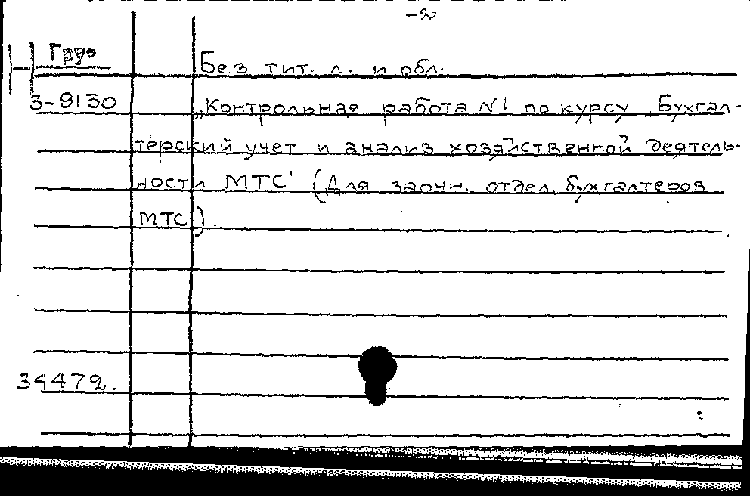 Груз
Без тит. л. и обл.
3-9130
„Контрольная работа №1 по курсу „Бухгал-
терский учет и анализ хозяйственной деятель-
ности МТС" (Для заочн. отдел. бухгалтеров
МТС)
34479.